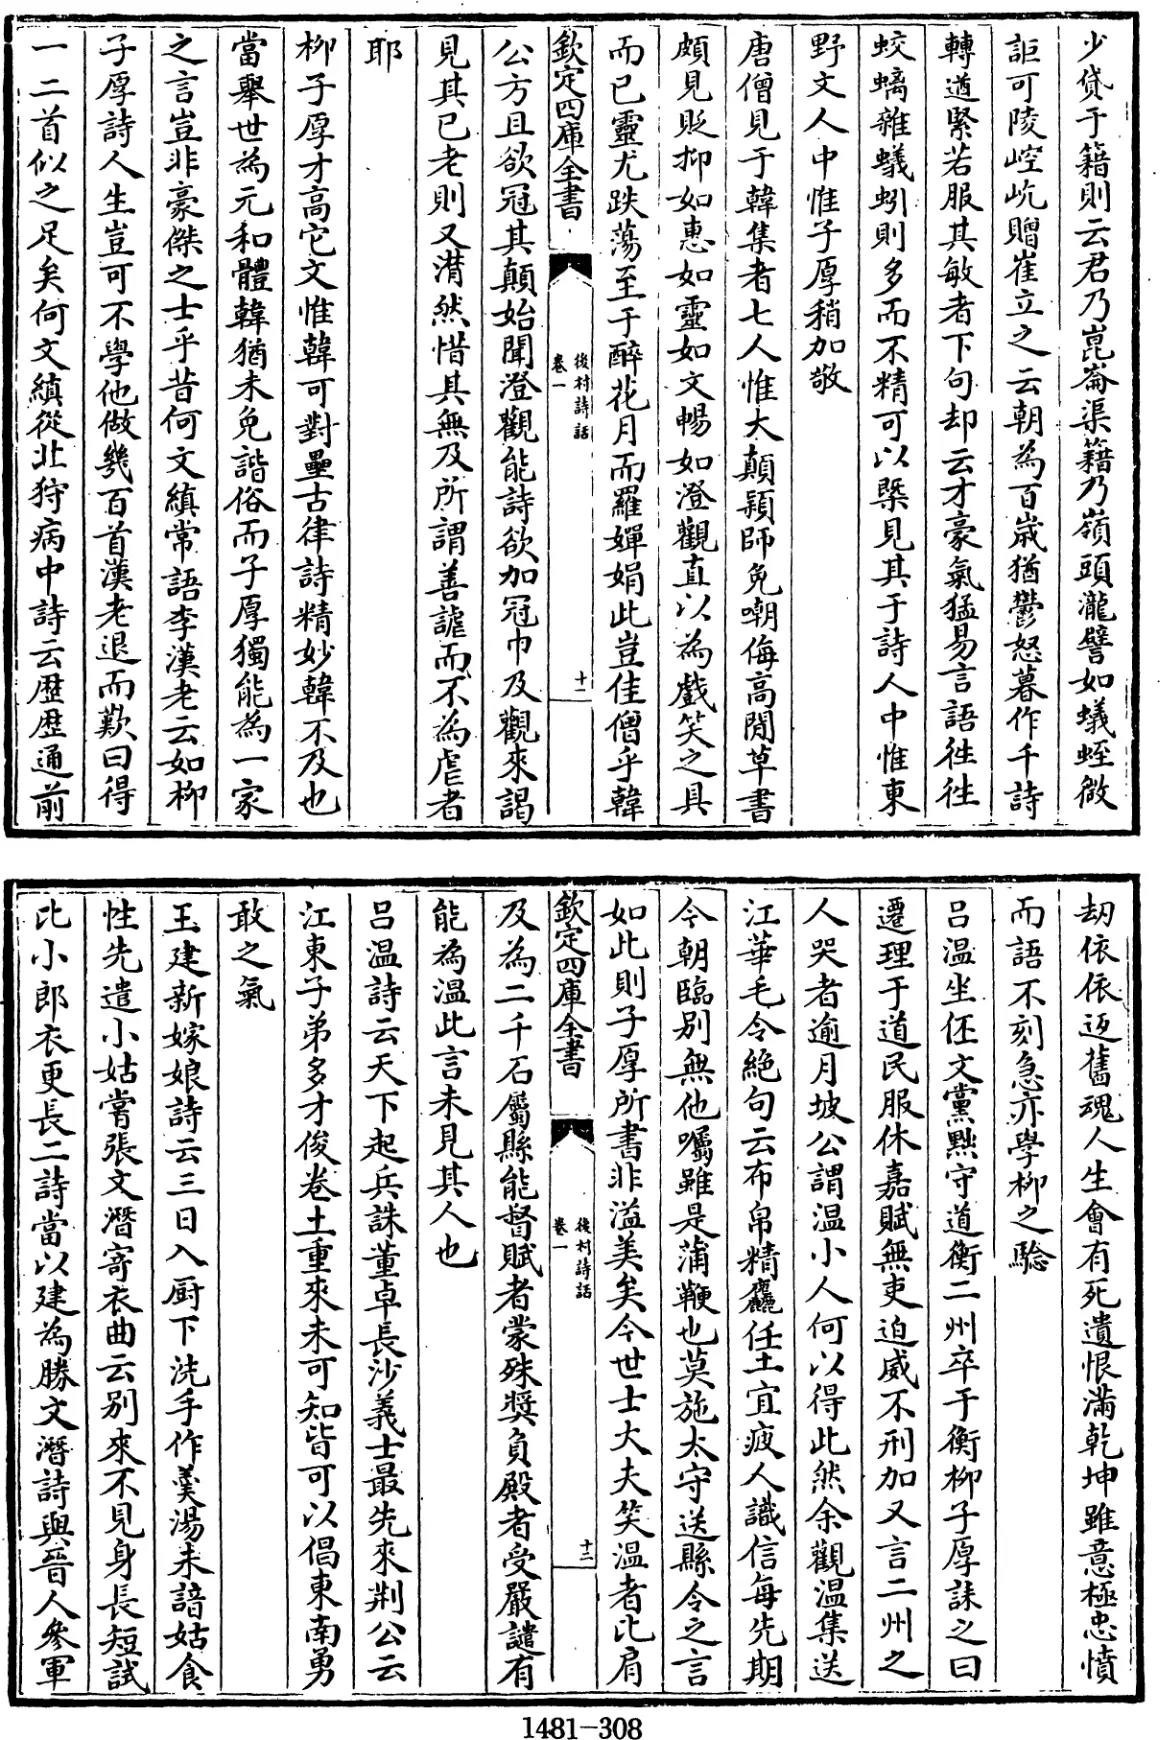 少貸于籍則云君乃崑崙渠籍乃嶺頭瀧譬如蟻蛭微
詎可陵崆㟁贈崔立之云朝為百歲猶鬱怒暮作千詩
轉遒緊若服其敏者下句却云才豪氣猛易言語徃徃
蛟螭雜蟻蚓則多而不精可以槩見其于詩人中惟東
野文人中惟子厚稍加敬
唐僧見于韓集者七人惟大顛穎師免嘲侮高閒草書
頗見貶抑如惠如靈如文暢如澄觀直以為戲笑之具
而已靈尤跌蕩至于醉花月而羅嬋娟此豈佳僧乎韓
欽定四庫全書
後村詩話
卷一
十一
公方且欲冠其顛始聞澄觀能詩欲加冠巾及觀來謁
見其已老則又潸然惜其無及所謂善謔而不為虐者
耶
柳子厚才高它文惟韓可對壘古律詩精妙韓不及也
當舉世為元和體韓猶未免諧俗而子厚獨能為一家
之言豈非豪傑之士乎昔何文縝常語李漢老云如柳
子厚詩人生豈可不學他做幾百首漢老退而歎曰得
一二首似之足矣何文縝從北狩病中詩云歴歴通前
劫依依返舊魂人生會有死遺恨滿乾坤雖意極忠憤
而語不刻急亦學柳之驗
吕温坐伾文黨黜守道衡二州卒于衡柳子厚誄之曰
遷理于道民服休嘉賦無吏迫威不刑加又言二州之
人哭者逾月坡公謂温小人何以得此然余觀温集送
江華毛令絶句云布帛精麤任土宜疲人識信每先期
今朝臨别無他囑雖是蒲鞭也莫施太守送縣令之言
如此則子厚所書非溢美矣今世士大夫笑温者比肩
欽定四庫全書
後村詩話
卷一
十二
及為二千石屬縣能督賦者蒙殊奬負殿者受嚴譴有
能為温此言未見其人也
吕温詩云天下起兵誅董卓長沙義士最先來荆公云
江東子弟多才俊卷土重來未可知皆可以倡東南勇
敢之氣
王建新嫁娘詩云三日入厨下洗手作羮湯未諳姑食
性先遣小姑嘗張文潛寄衣曲云别來不見身長短試
比小郎衣更長二詩當以建為勝文潛詩與晉人參軍
1481-308